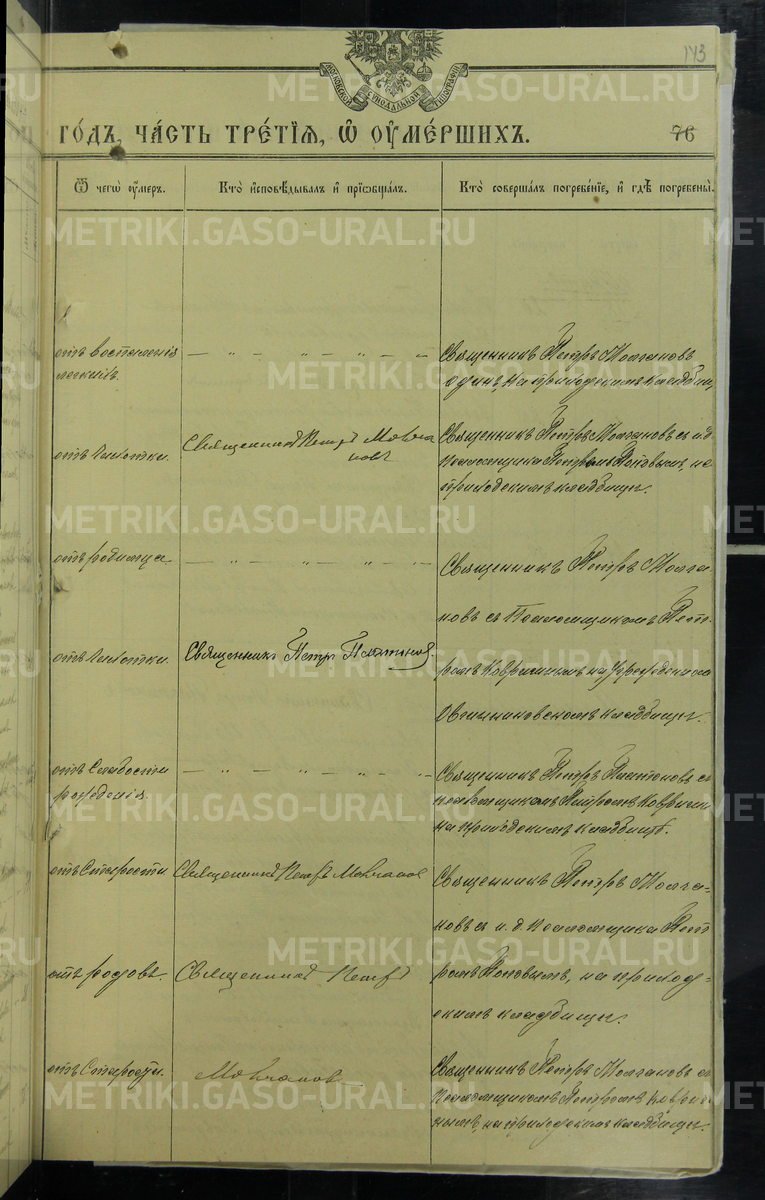 143
МОСКОВСКОЙ СѴНОДАЛЬНОЙ ТИПОГРАФІИ
ГО́ДЪ, ЧА́СТЬ ТРЕ́ТІѦ, Ѡ҆ ОУ҆МЕ́РШИХЪ.
76
Ѿ чегѡ̀ оу҆́меръ.
Кто̀ и҆сповѣ́дывалъ и҆ прїѡбща́лъ.
Кто̀ соверша́лъ погребе́нїе, и҆ гдѣ̀ погребены̀.
отъ воспаленія
легкихъ.
— „ — „ — „ — „ —
Священникъ Петръ Молчановъ
одинъ, на приходскомъ кладбищ
отъ чахотки.
Священникъ Петръ Молча
новъ
Священникъ Петръ Молчановъ съ и.д
псаломщика Петромъ Поповымъ, на
приходскомъ кладбищѣ.
отъ родимца
— „ — „ — „ — „ —
Священникъ Петръ Молча-
новъ съ Псаломщикомъ Пет-
ромъ Ковригинымъ на
Овчинниковскомъ кладбищѣ.
отъ чахотки.
Священникъ Петр Платонов.
отъ слабости
рожденія.
— „ — „ — „ — „ —
Священникъ Петръ Платоновъ съ
псаломщикомъ Петромъ Ковригин
на приходскомъ кладбищѣ.
отъ старости
Священникъ Петръ Молчанов
Священникъ Петръ Молча-
новъ съ и. д. псаломщика Пет
ромъ Поповымъ, на приход-
скомъ кладбищѣ.
отъ родовъ.
Священникъ Петръ
отъ старости.
Молчановъ
Священникъ Петръ Молчановъ съ
Псаломщикомъ Петромъ Ковриги
нымъ, на приходскомъ кладбищѣ.
METRIKI.GASO-URAL.RU